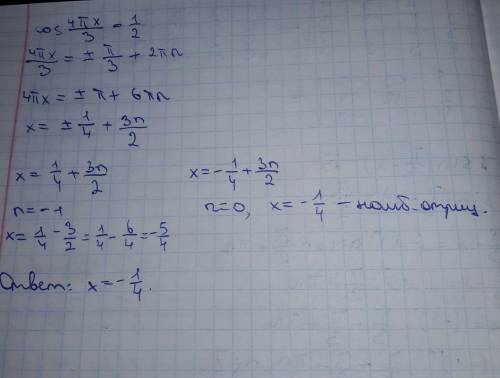 cos 4πx/3 = 1/2
4πx/3 = ± π/3 + 2πn
4πx = ± π + 6πn
x = ± 1/4 + 3n/2
x = 1/4 + 3n/2
n = -1
x = 1/4 - 3/2 = 1/4 - 6/4 = -5/4
x = - 1/4 + 3n/2
n = 0, x = - 1/4 - наиб. отриц.
Ответ: x = - 1/4.